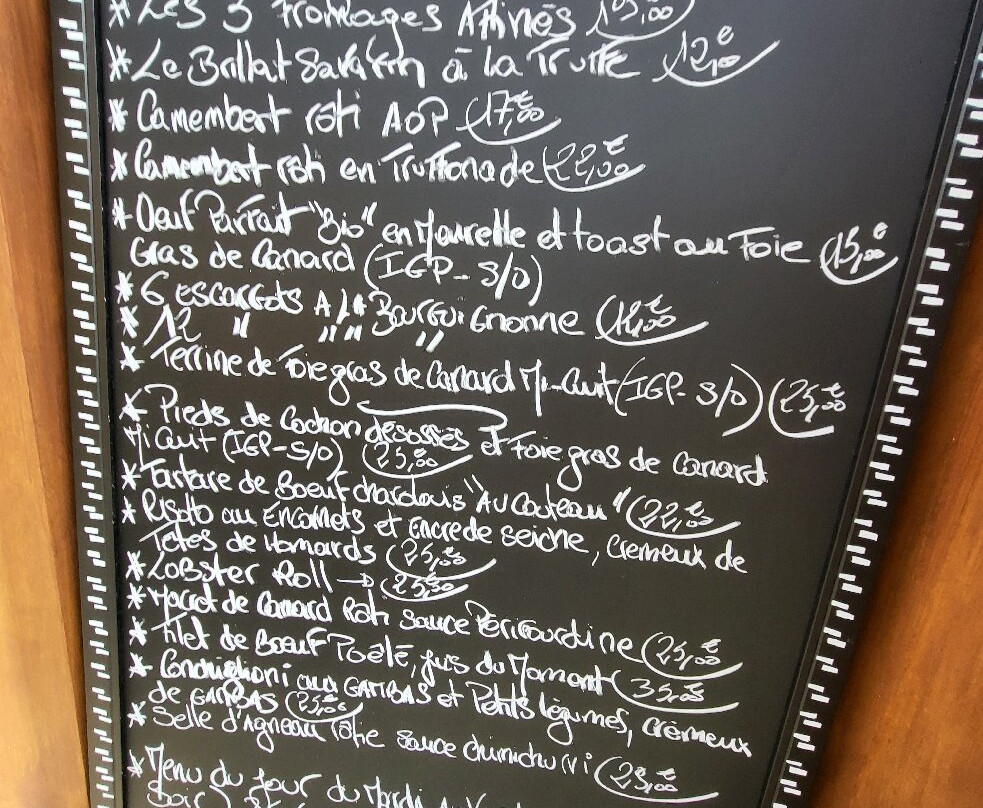 * Les 3 Fromages Affinés 15,00
* Le Brillat Savarin à la Truffe 12,00 €
* Camembert rôti AOP 17,00 €
* Camembert rôti en Truffonade 22,00 €
* Oeuf Parfait "Bio" en Meurette et toast au Foie 15,00 €
Gras de Canard (IGP-S/O)
* 6 escargots A la Bourguignonne 12,00 €
* 12 " " " "
* Terrine de foie gras de Canard Mi-Cuit (IGP-S/O) 25,00 €
* Pieds de Cochon desossés et foie gras de Canard
Mi Cuit (IGP-S/O) 25,00 €
* Tartare de Boeuf charolais "Au Couteau" 22,00 €
* Risotto au Encornets et Encre de seiche, Cremeux de
Têtes de Homards 25,00 €
* Lobster Roll → 25,50 €
* Magret de Canard Rôti Sauce Périgourdine 25,00 €
* Filet de Boeuf Poêlé, jus du Moment 35,00 €
* Conchiglioni aux GAMBAS et Petits légumes, Crémeux
de GAMBAS 25,00 €
* Selle d'Agneau rôtie sauce chimichurri 25,00 €
* Menu du Jour du Mardi au
Soir